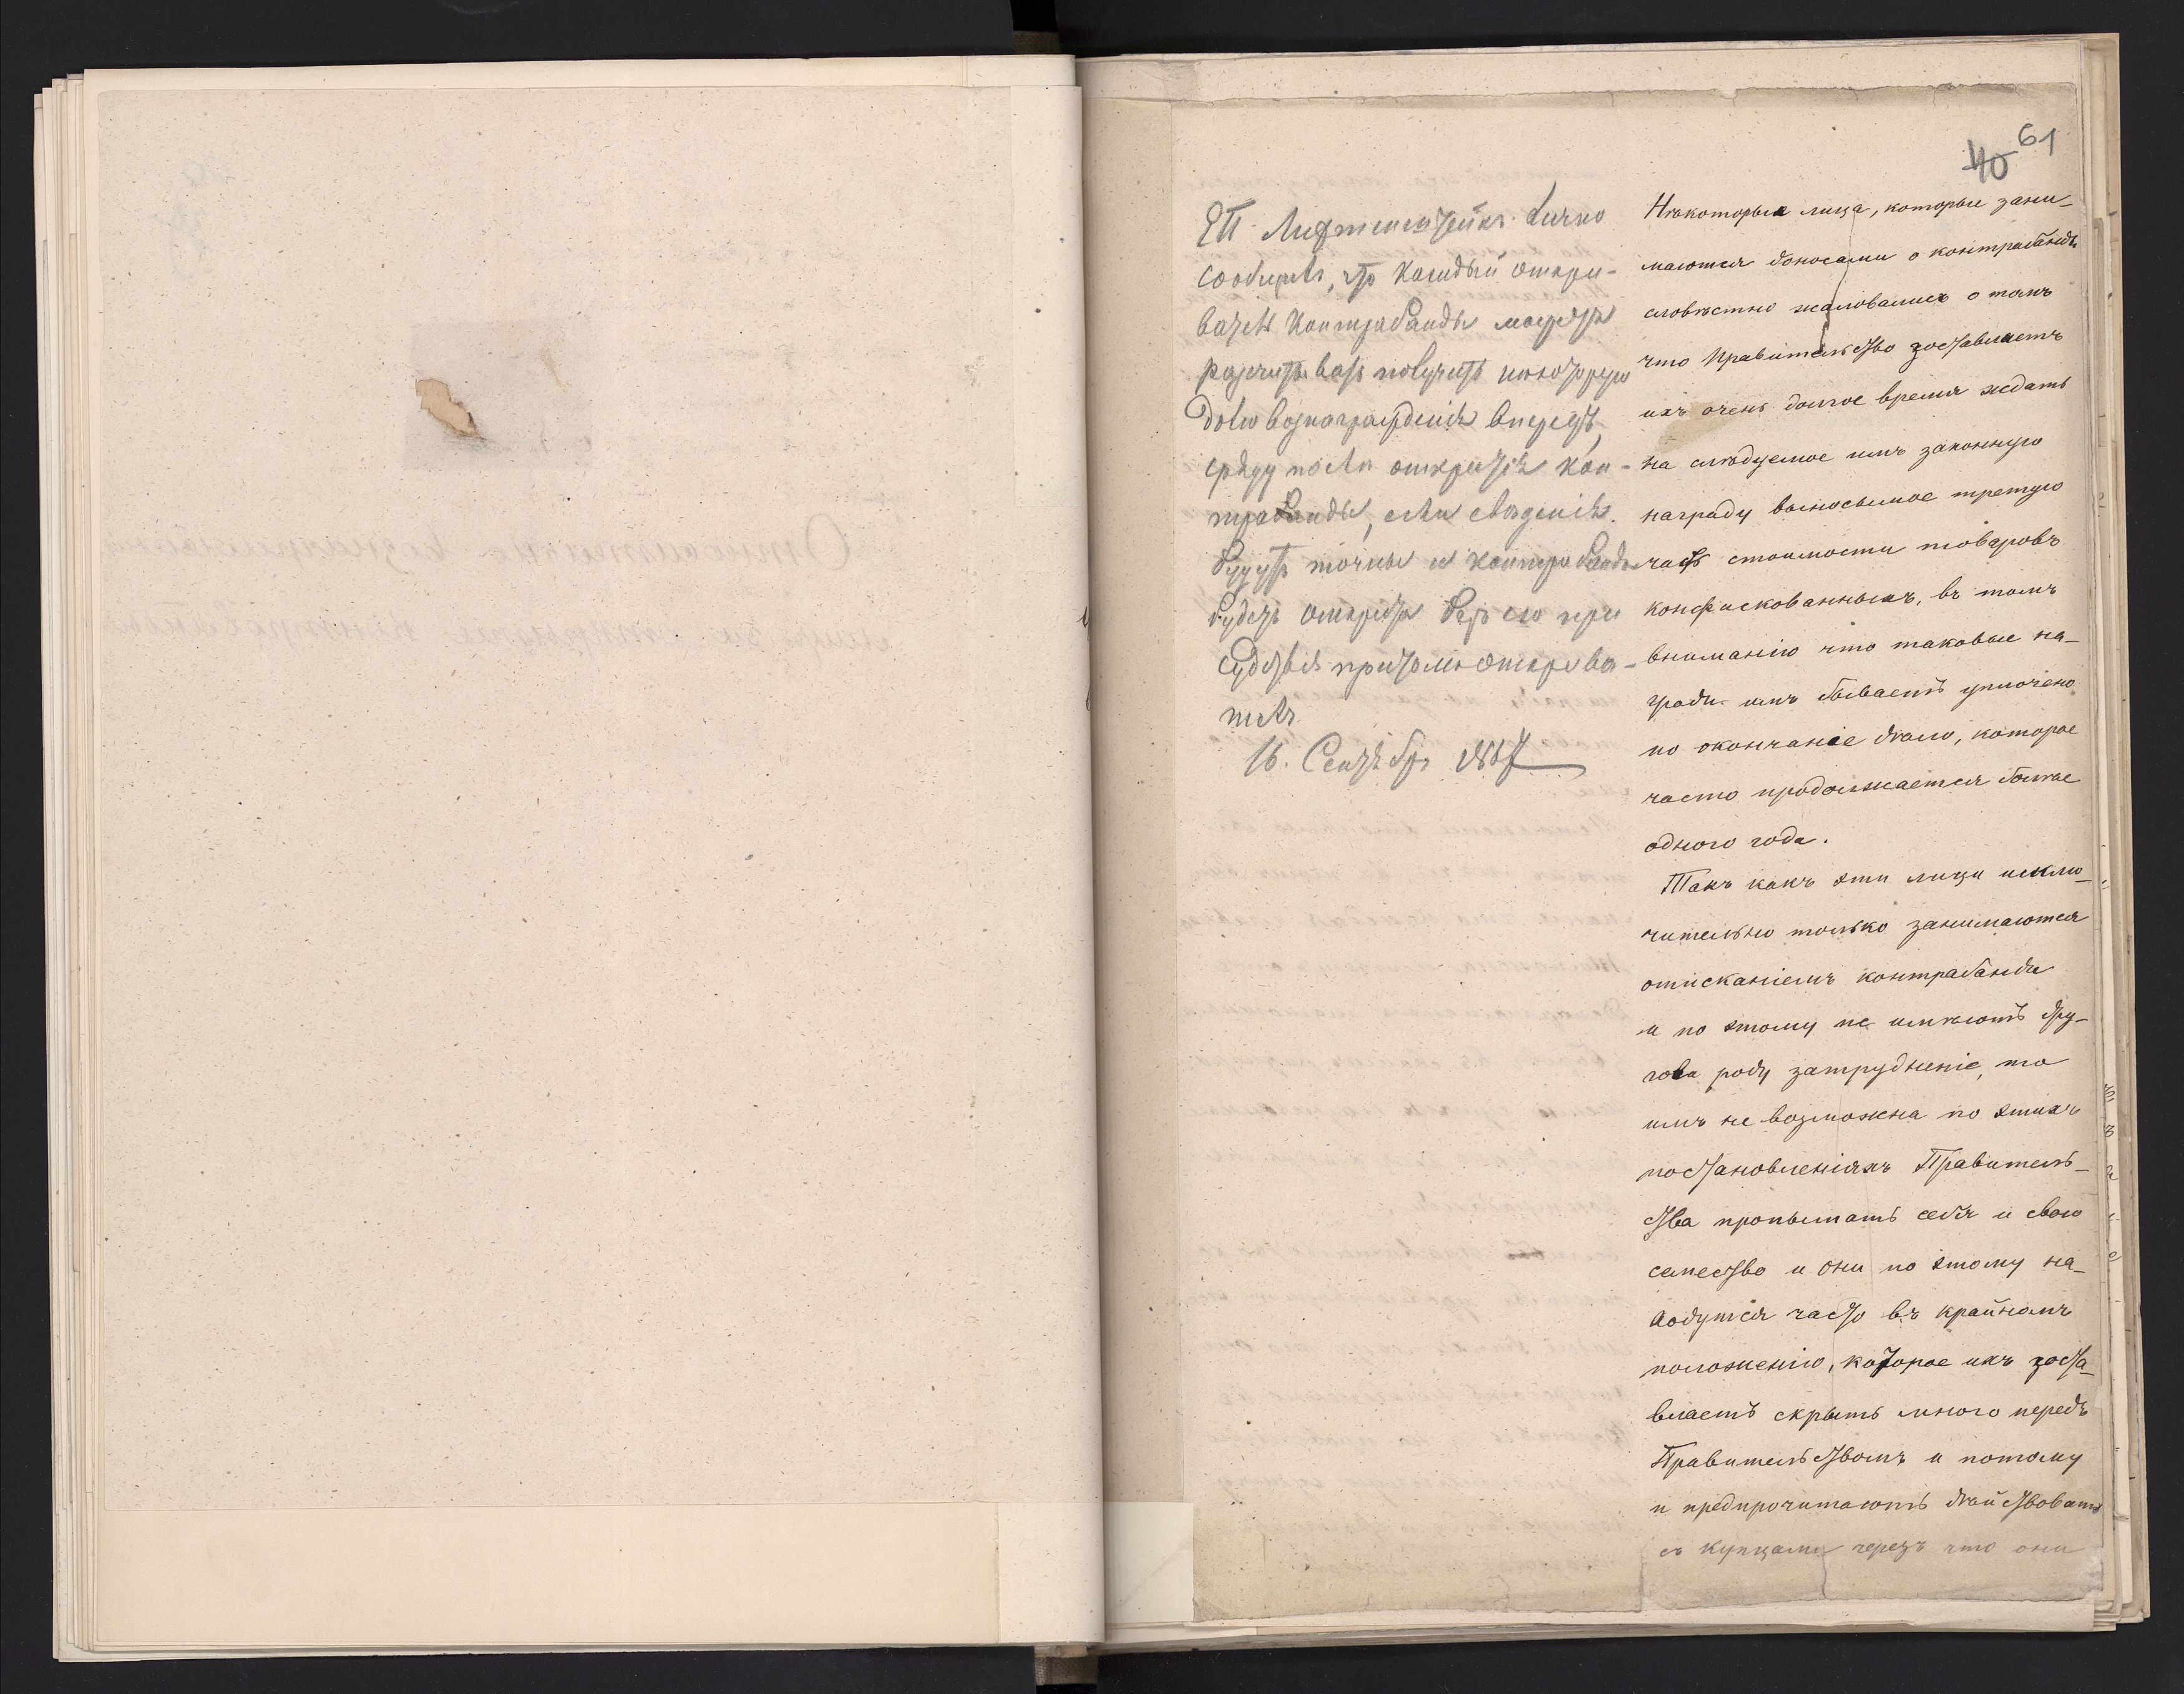 40 61
Лифтенштейнъ лично
сообщить, что каждый откры-
ватель контрабанды можетъ
разчитывать получить некоторую
долю вознагражденія впередъ,
сряду после открытія кон-
трабанды, если сведенія
будутъ точны и контрабанда
будетъ открыта безъ
притомъ открыва-
теля
16. Сентябр 1867
Нѣкоторыя лица, которые зани-
маются доносами о контрабандѣ
словѣстно жаловались о томъ
что Правительство заставляетъ
ихъ очень долгое время ждать
на слѣдуемое имъ законную
награду выносимое третую
часть стоимости товаровъ
конфискованныхъ, въ томъ
вниманію что таковые на-
гради имъ бываетъ уплочено
по окончаніе дѣло, которое
часто продолжается болѣе
одного года.
Такъ какъ эти лицы исклю-
чительно только занимаются
отисканіемъ контрабанды
и по этому не имѣютъ дру-
гова роду затрудненіе, то
имъ не возможна по этихъ
постановленіяхъ Правитель-
ства пропытать себя и свою
семество и они по этому на-
ходутся часто въ крайномъ
положенію, которое ихъ заста-
вляетъ скрыть много передъ
Правительствомъ и потому
и предпрочитаютъ дѣйствовать
съ купцами черезъ что они